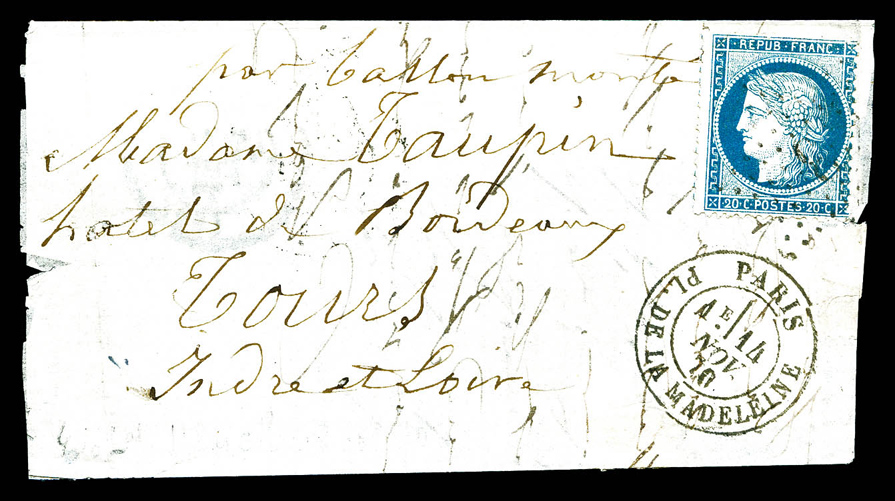 par ballon monté
REPUB·FRANC·
20·C·POSTES·20·C
Madame Taupin
hotel de Bordeaux
Tours
Indre et Loire
PARIS
1E / 14
NOV.
70
PL. DE LA MADELEINE